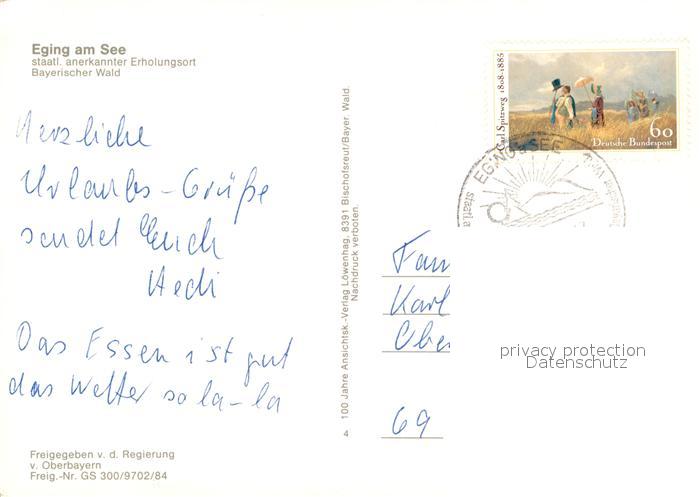 Eging am See
staatl. anerkannter Erholungsort
Bayerischer Wald
Herzliche
Urlaubs-Grüße
sendet Euch
Hedi
Das Essen ist gut
das Wetter so la-la
Freigegeben v. d. Regierung
v. Oberbayern
Freig.-Nr. GS 300/9702/84
100 Jahre Ansichtsk.-Verlag Löwenhag, 8391 Bischofsreut/Bayer. Wald.
Nachdruck verboten.
4
Carl Spitzweg 1808-1885
60
Deutsche Bundespost
EGING a SEE
staatl.a
Fam
Karl
Ober
69
privacy protection
Datenschutz